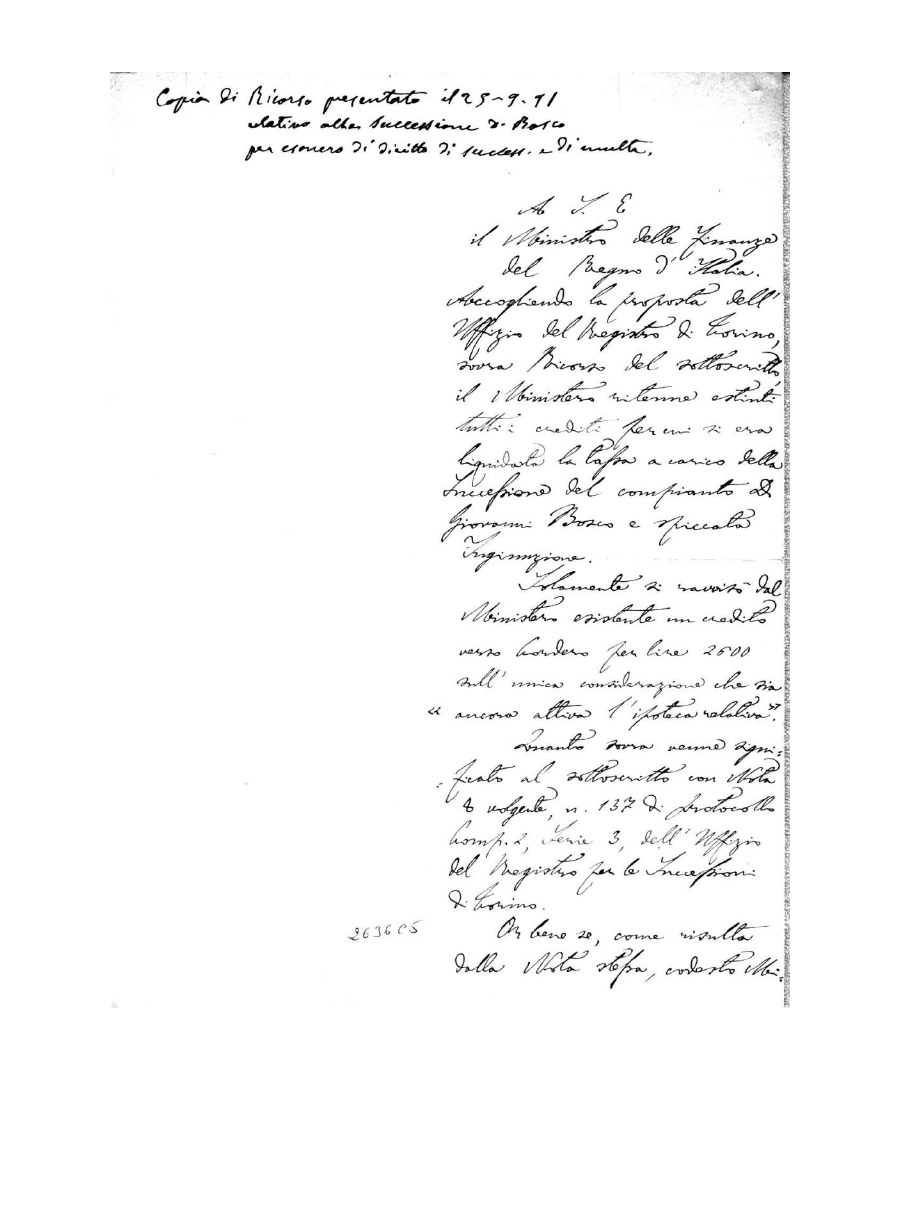 Copia di Ricorso presentato il 25-9-91
relativo alla Successione D. Bosco
per esonero di diritto di success. e di multa.
A S. E
il Ministro delle Finanze
del Regno d'Italia.
Accogliendo la proposta dell'
Uffizio del Registro di Torino,
sovra Ricorso del sottoscritto,
il Ministero ritenne estinti
tutti i crediti per cui si era
liquidata la tassa a carico della
Successione del compianto D.
Giovanni Bosco e spiccata
Ingiunzione.
Solamente si ravvisò dal
Ministero esistente un credito
verso Cordero per lire 2600
sull'unica considerazione che sia
« ancora attiva l'ipoteca relativa ».
Quanto sovra venne signi:
:ficato al sottoscritto con Nota
8 volgente, n. 137 di protocollo
Comp. 2, Serie 3, dell'Uffizio
del Registro per le Successioni
di Torino.
2636C5
Or bene se, come risulta
dalla Nota stessa, codesto Mi: